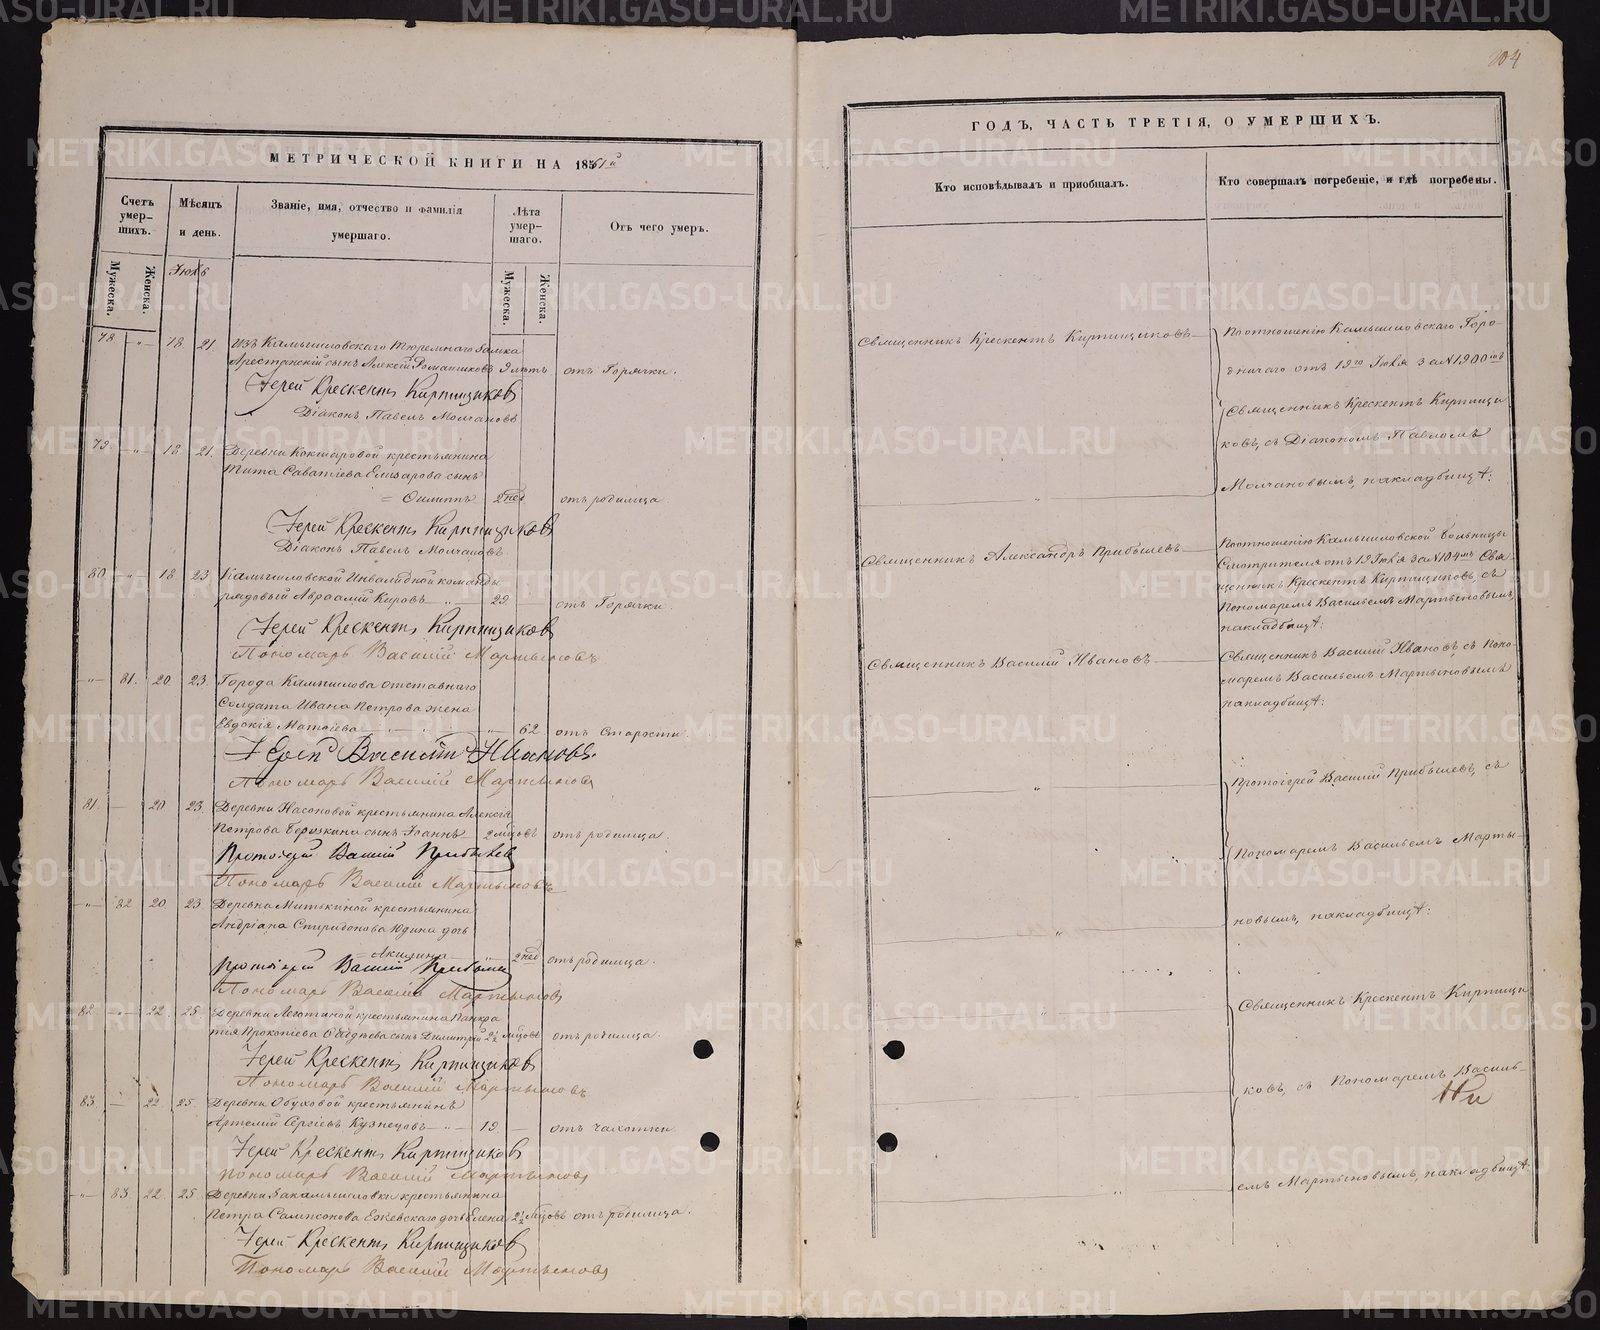 МЕТРИЧЕСКОЙ КНИГИ НА 1861й
Счетъ умер-шихъ.
Мѣсяцъ и день.
Званіе, имя, отчество и фамилія умершаго.
Лѣта умер-шаго.
Отъ чего умеръ.
Мужеска.
Женска.
Мужеска.
Женска.
Іюль
78 " 18. 21. Изъ Камышловскаго Тюремнаго Замка
Арестанскій сынъ Алексій Романиковъ 9 лѣтъ отъ Горячки.
Іерей Крескентъ Кирпищиковъ
Діаконъ Павелъ Молчановъ
79. " 18. 21. Деревни Кокшаровой крестьянина
Тита Саватіева Елизарова сынъ
= Филиппъ 2 нед отъ родимца.
Іерей Крескентъ Кирпищиковъ
Діаконъ Павелъ Молчановъ
80 " 18 23 Камышловской Инвалидной команды
рядовый Авраамій Кировъ 29 отъ Горячки.
Іерей Крескентъ Кирпищиковъ
Пономарь Василій Мартыновъ
" 81. 20 23. Города Камышлова отставнаго
Солдата Ивана Петрова жена
Евдокія Матѳіева 62 отъ Старости.
Іерей Василій Ивановъ.
Пономарь Василій Мартыновъ
81. 20 23. Деревни Насоновой крестьянина Алексія
Петрова сынъ Іоаннъ 2 мѣсцовъ отъ родимца.
Протоіерей Василій Прибылевъ
Пономарь Василій Мартыновъ
" 82 20. 23. Деревни Митькиной крестьянина
Андріана Спиридонова Юдина дочь
= Акилина 2 нед отъ родимца.
Протоіерей Василій Прибылевъ
Пономарь Василій Мартыновъ
82 " 22. 25. Деревни крестьянина Панкра
тія Прокопіева сынъ Димитрій 2½ мѣсцовъ отъ родимца.
Іерей Крескентъ Кирпищиковъ
Пономарь Василій Мартыновъ
83 22 25. Деревни Обуховой крестьянинъ
Артемій Сергіевъ Кузнецовъ 19 отъ чахотки
Іерей Крескентъ Кирпищиковъ
Пономарь Василій Мартыновъ
" 83. 22. 25. Деревни Закамышловки крестьянина
Петра Сампсонова Ежевскаго дочь Елена 2½ мѣсцовъ отъ родимца.
Іерей Крескентъ Кирпищиковъ
Пономарь Василій Мартыновъ
204
ГОДЪ, ЧАСТЬ ТРЕТІЯ, О УМЕРШИХЪ.
Кто исповѣдывалъ и пріобщалъ.
Кто совершалъ погребеніе, и гдѣ погребены.
Священникъ Крескентъ Кирпищиковъ
По отношенію Камышловскаго Горо-
дничаго отъ 19го Іюля за № 1900мъ
Священникъ Крескентъ Кирпищи
ковъ, съ Діакономъ Павломъ
Молчановымъ, на кладбищѣ:
Священникъ Александръ Прибылевъ
По отношенію Камышловской больницы
Смотрителя отъ 19 Іюля за № 104мъ Свя-
щенникъ Крескентъ Кирпищиковъ, съ
Пономаремъ Васильемъ Мартыновымъ,
на кладбищѣ:
Священникъ Василій Ивановъ
Священникъ Василій Ивановъ съ Поно-
маремъ Васильемъ Мартыновымъ
на кладбищѣ:
Протоіерей Василій Прибылевъ, съ
Пономаремъ Васильемъ Марты-
новымъ, на кладбищѣ:
Священникъ Крескентъ Кирпищи
ковъ, съ Пономаремъ Василь-
емъ Мартыновымъ, на кладбищѣ:
METRIKI.GASO-URAL.RU